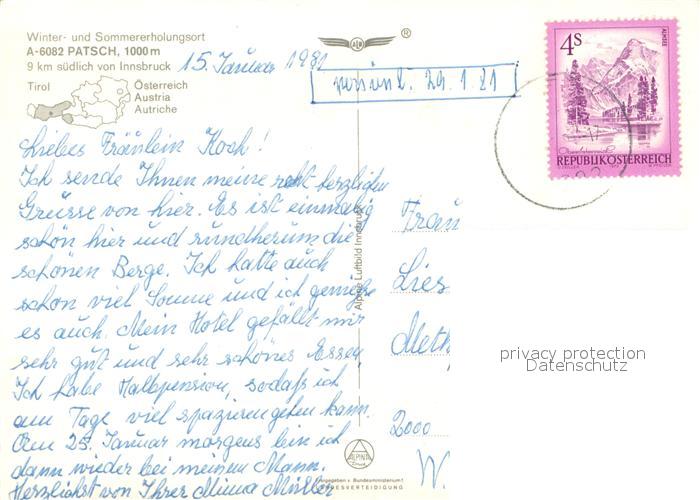 Winter- und Sommererholungsort
A-6082 PATSCH, 1000 m
9 km südlich von Innsbruck
15. Januar 1981
Tirol
Österreich
Austria
Autriche
®
29.1.81
4 S
ALMSEE
Oberösterreich
REPUBLIK ÖSTERREICH
Liebes Fräulein Koch!
Ich sende Ihnen meine recht herzlichen
Grüsse von hier. Es ist einmalig
schön hier und rundherum die
schönen Berge. Ich hatte auch
schon viel Sonne und ich genieße
es auch. Mein Hotel gefällt mir
sehr gut und sehr schönes Essen.
Ich habe Halbpension, sodaß ich
am Tage viel spazierengehen kann.
Am 25. Januar morgens bin ich
dann wieder bei meinem Mann.
Herzlichst von Ihrer Minna Müller
Alpine Luftbild Innsbruck
Fräu
Lies
Meth
2000
W.
privacy protection
Datenschutz
ALPINE
Freigegeben v. Bundesministerium f.
LANDESVERTEIDIGUNG